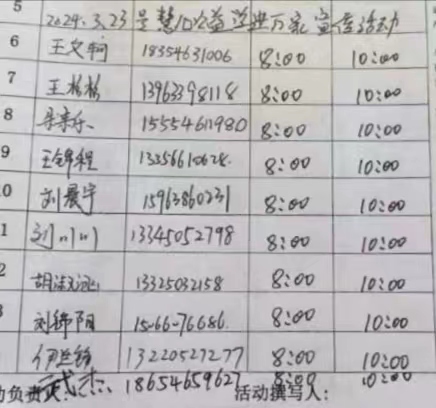 5 2024.3.23 是慧 公益 进万家宣传活动
6 王文轲 18354631006 8:00 10:00
7 王彬彬 13963398118 8:00 10:00
8 15554611980 8:00 10:00
9 王锦程 13356610628. 8:00 10:00
0 刘晨宇 15963860231 8:00 10:00
1 刘川川 13345052798 8:00 10:00
2 胡 13325032158 8:00 10:00
刘锦阳 15-66-76686. 8:00 10:00
伊 13220527277 8:00 10:00
动负责人: 武杰 18654659627 活动撰写人: 8:00 10:00